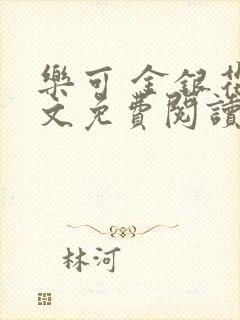 樂可 金銀花
文免費閱讀
林河